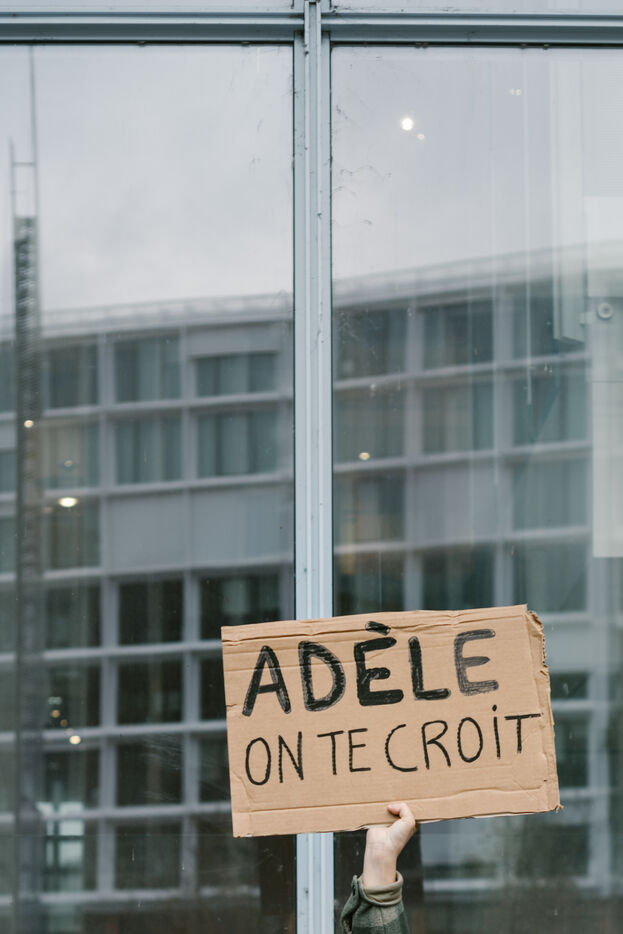 ADÈLE
ON TE CROiT